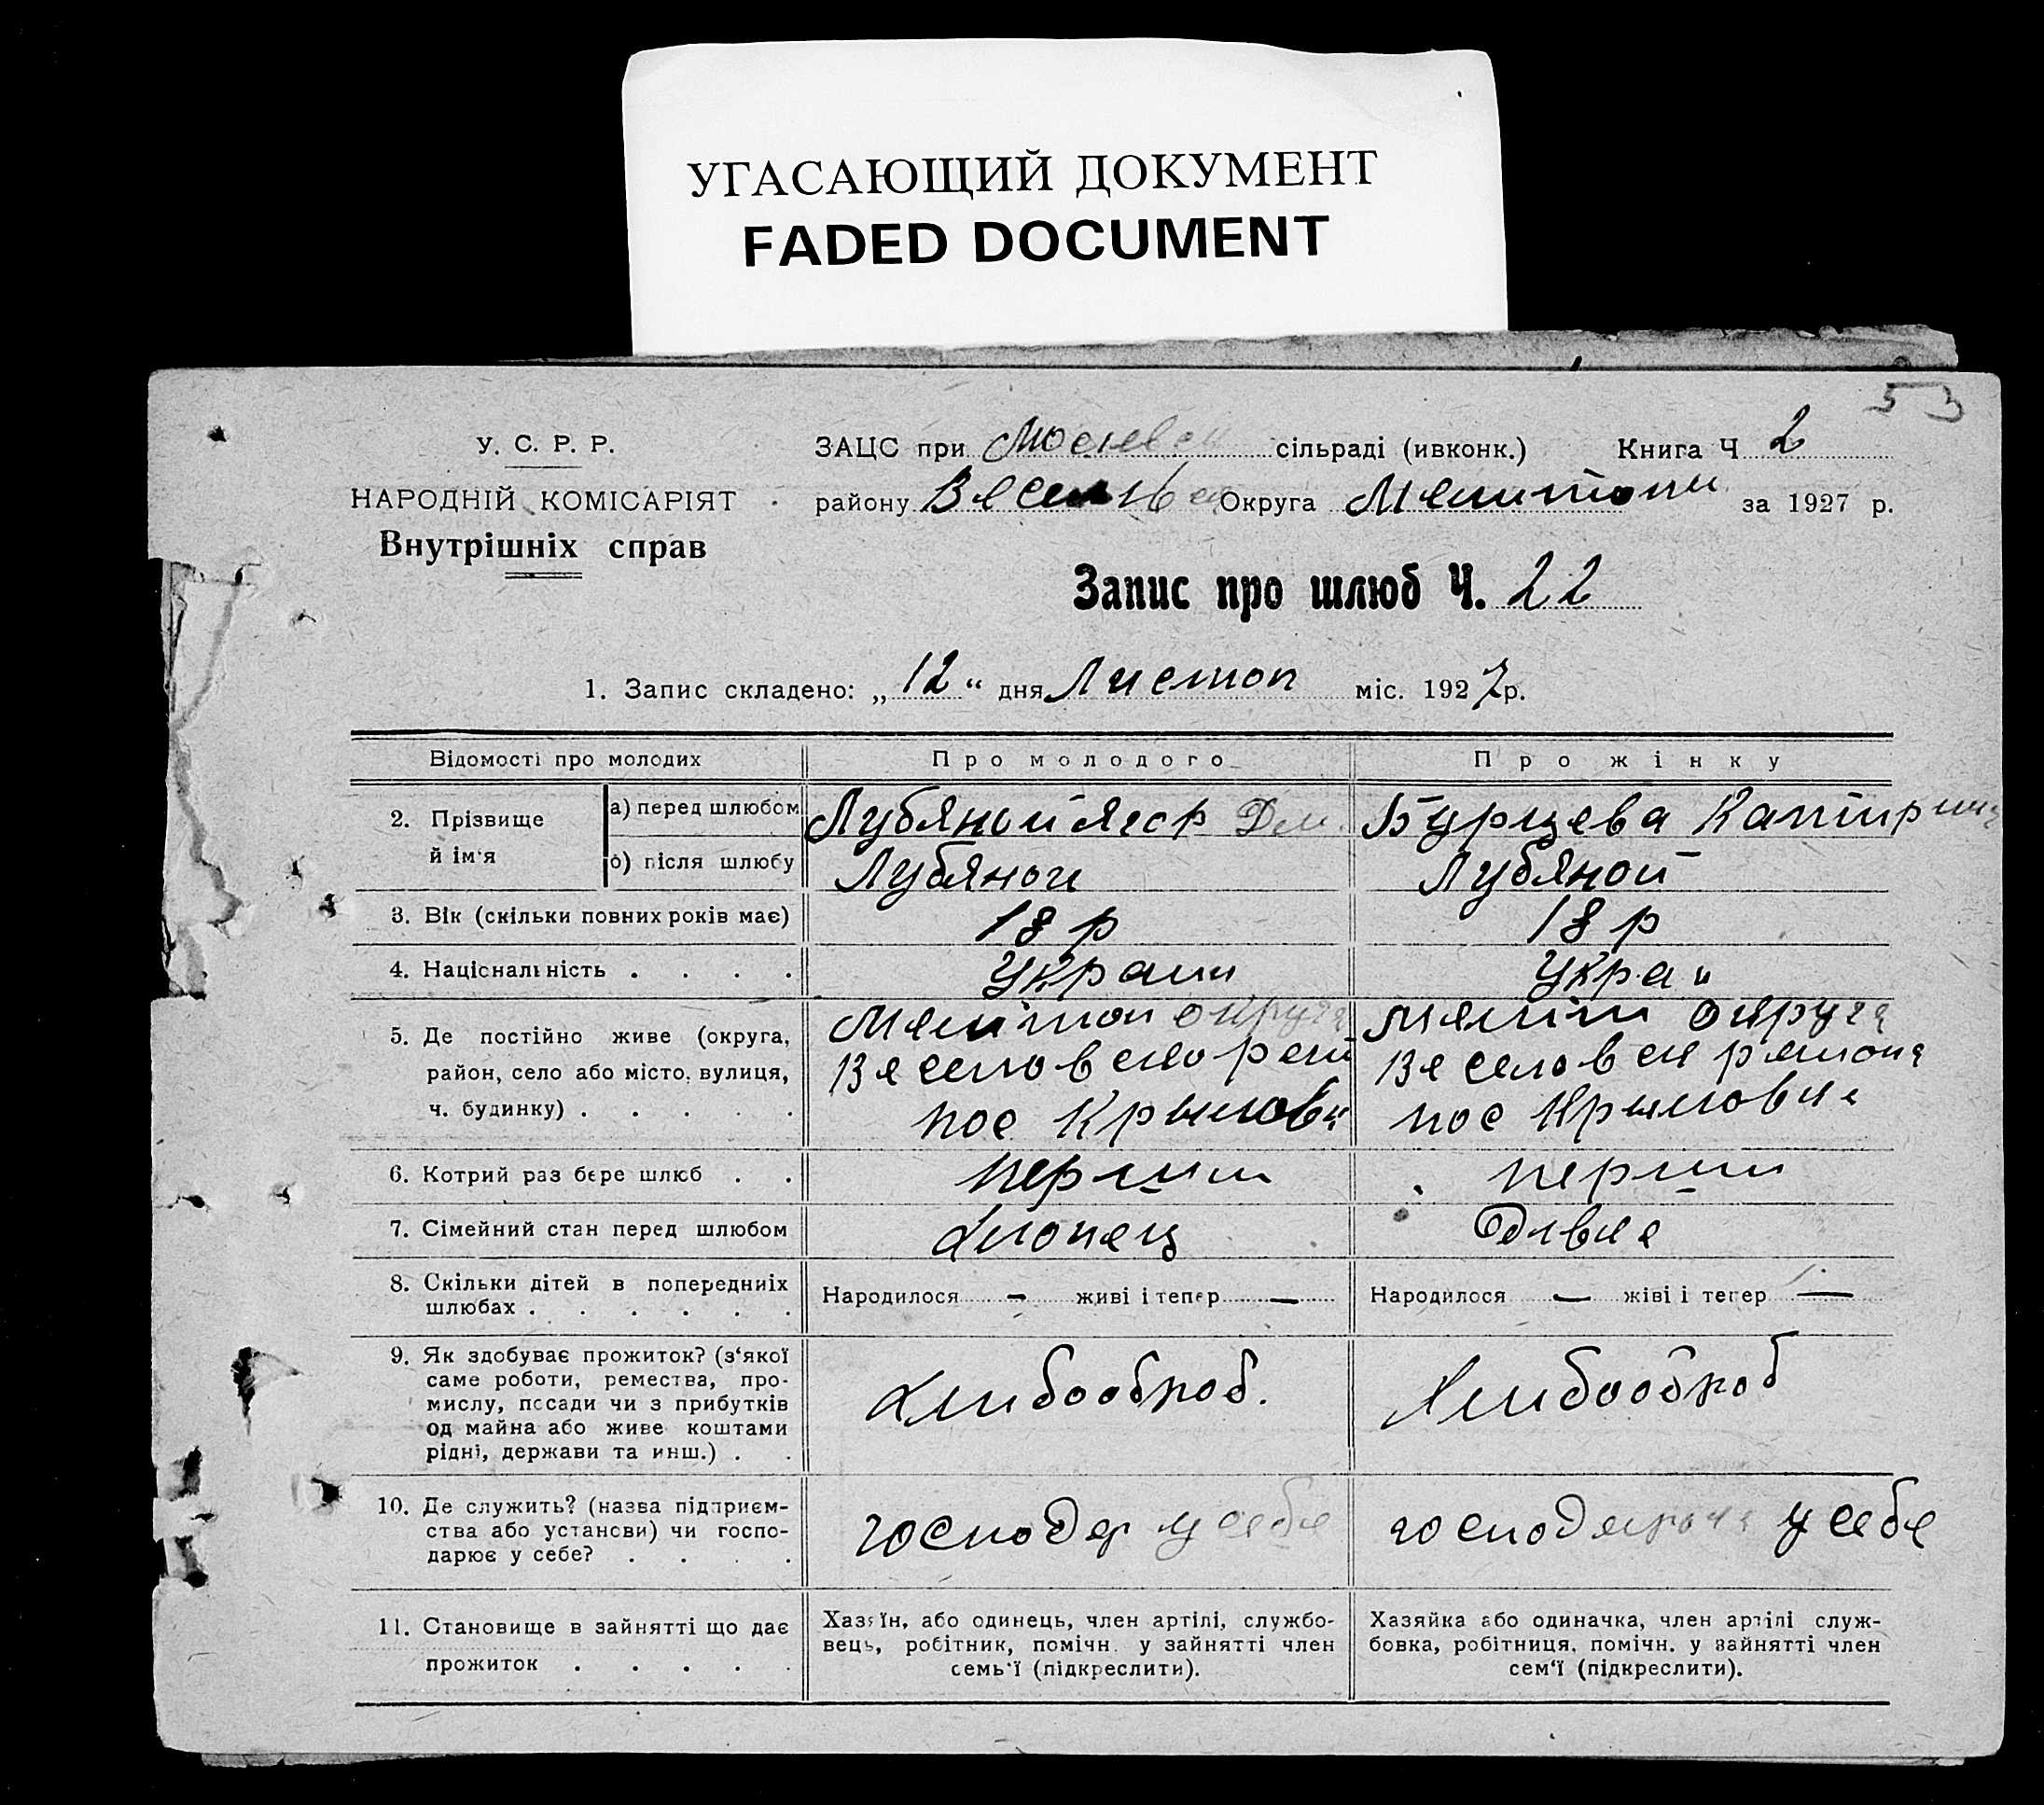 УГАСАЮЩИЙ ДОКУМЕНТ
FADED DOCUMENT
53
У. С. Р. Р.
НАРОДНІЙ КОМІСАРІЯТ
Внутрішніх справ
ЗАЦС при сільраді (ивконк.) Книга Ч 2
району Округа за 1927 р.
Запис про шлюб Ч. 22
1. Запис складено: „ 12 “ дня Листоп міс. 1927 р.
Відомості про молодих Про молодого Про жінку
2. Прізвище й ім'я а) перед шлюбом Лубяной Ягор Дм. Бурцева
б) після шлюбу Лубяной Лубяной
3. Вік (скільки повних років має) 18 р 18 р
4. Національність . . . . Украин Украи
5. Де постійно живе (округа, округа округа
район, село або місто, вулиця,
ч. будинку) . . . . . пос пос
6. Котрий раз бере шлюб . . перши перши
7. Сімейний стан перед шлюбом Хлопец
8. Скільки дітей в попередниіх Народилося - живі і тепер — Народилося — жіві і тепер —
шлюбах . . . . . .
9. Як здобуває прожиток? (з‘якої
саме роботи, ремества, про-
мислу, посади чи з прибутків Хлибооброб. Хлибооброб
од майна або живе коштами
рідні, держави та инш.) . .
10. Де служить? (назва підприєм-
ства або установи) чи госпо- господар у себе у себе
дарює у себе? . . . .
11. Становище в зайнятті що дає
прожиток . . . . .
Хазяїн, або одинець, член артілі, службо-
вець, робітник, помічн. у зайнятті член
семь‘ї (підкреслити).
Хазяйка або одиначка, член артілі служ-
бовка, робітниця, помічн. у зайнятті член
сем‘ї (підкреслити).